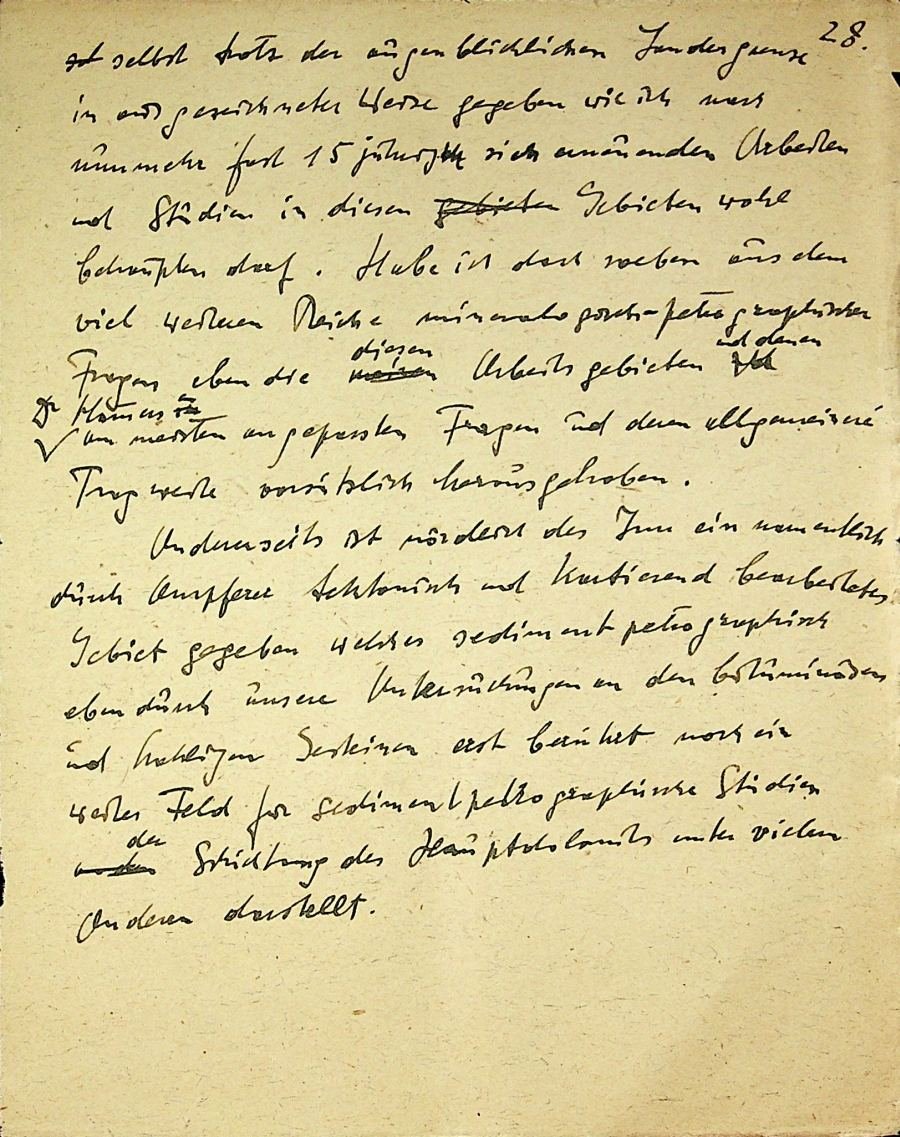 28.
ist selbst trotz der augenblicklichen Landesgrenze
in ausgezeichneter Weise gegeben wie ich nach
nunmehr fast 15 jährigen Arbeiten
und Studien in diesen gebieten Gebieten wohl
behaupten darf. Habe ich doch soeben aus dem
viel weiteren Reiche mineralogisch-petrographischer
Fragen eben die diesen Arbeitsgebieten und denen
Dr Hannes
am meisten angepassten Fragen und deren allgemeinere
Tragweite vorsätzlich herausgehoben.
Anderseits ist nördlich des Inn ein namentlich
durch Ampferer tektonisch und kartierend bearbeitetes
Gebiet gegeben welches sedimentpetrographisch
eben durch unsere Untersuchungen an den bituminösen
und kohligen Gesteinen erst berührt noch ein
weites Feld für sedimentpetrographische Studien
der
Schichtung des Hauptdolomits unter vielen
Anderen darstellt.